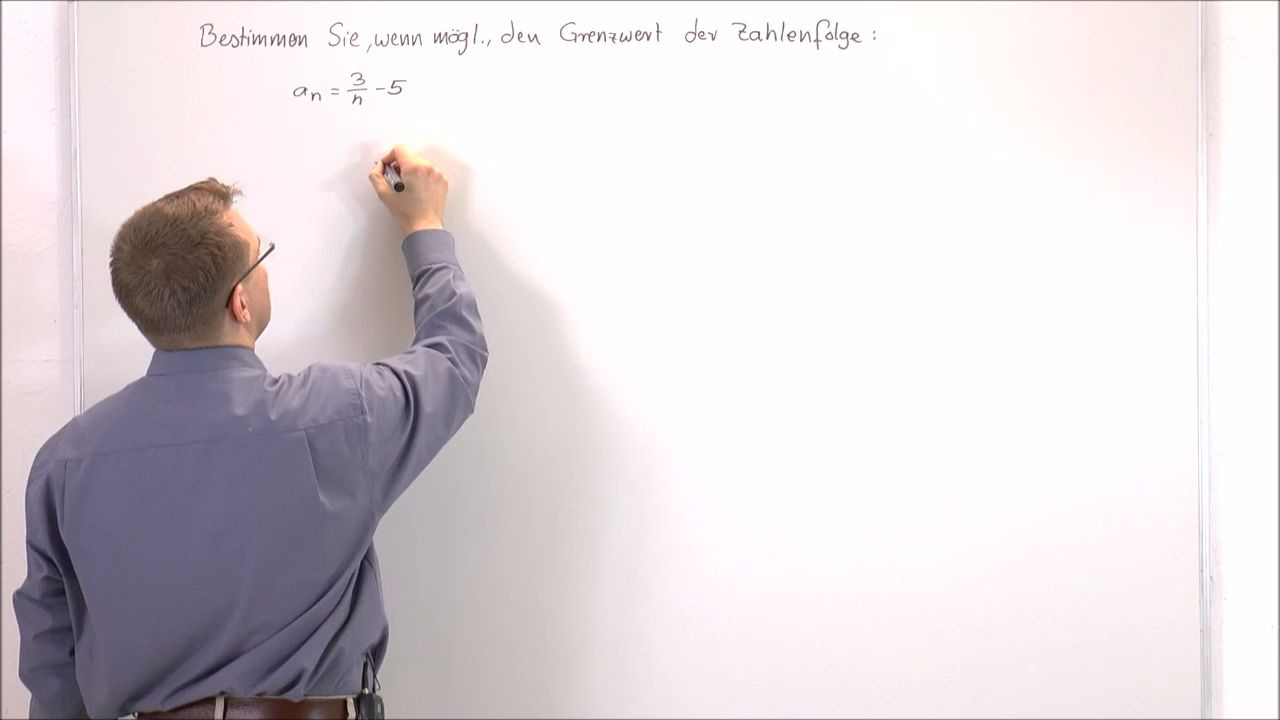 Bestimmen Sie, wenn mögl., den Grenzwert der Zahlenfolge:
aₙ = 3/n - 5